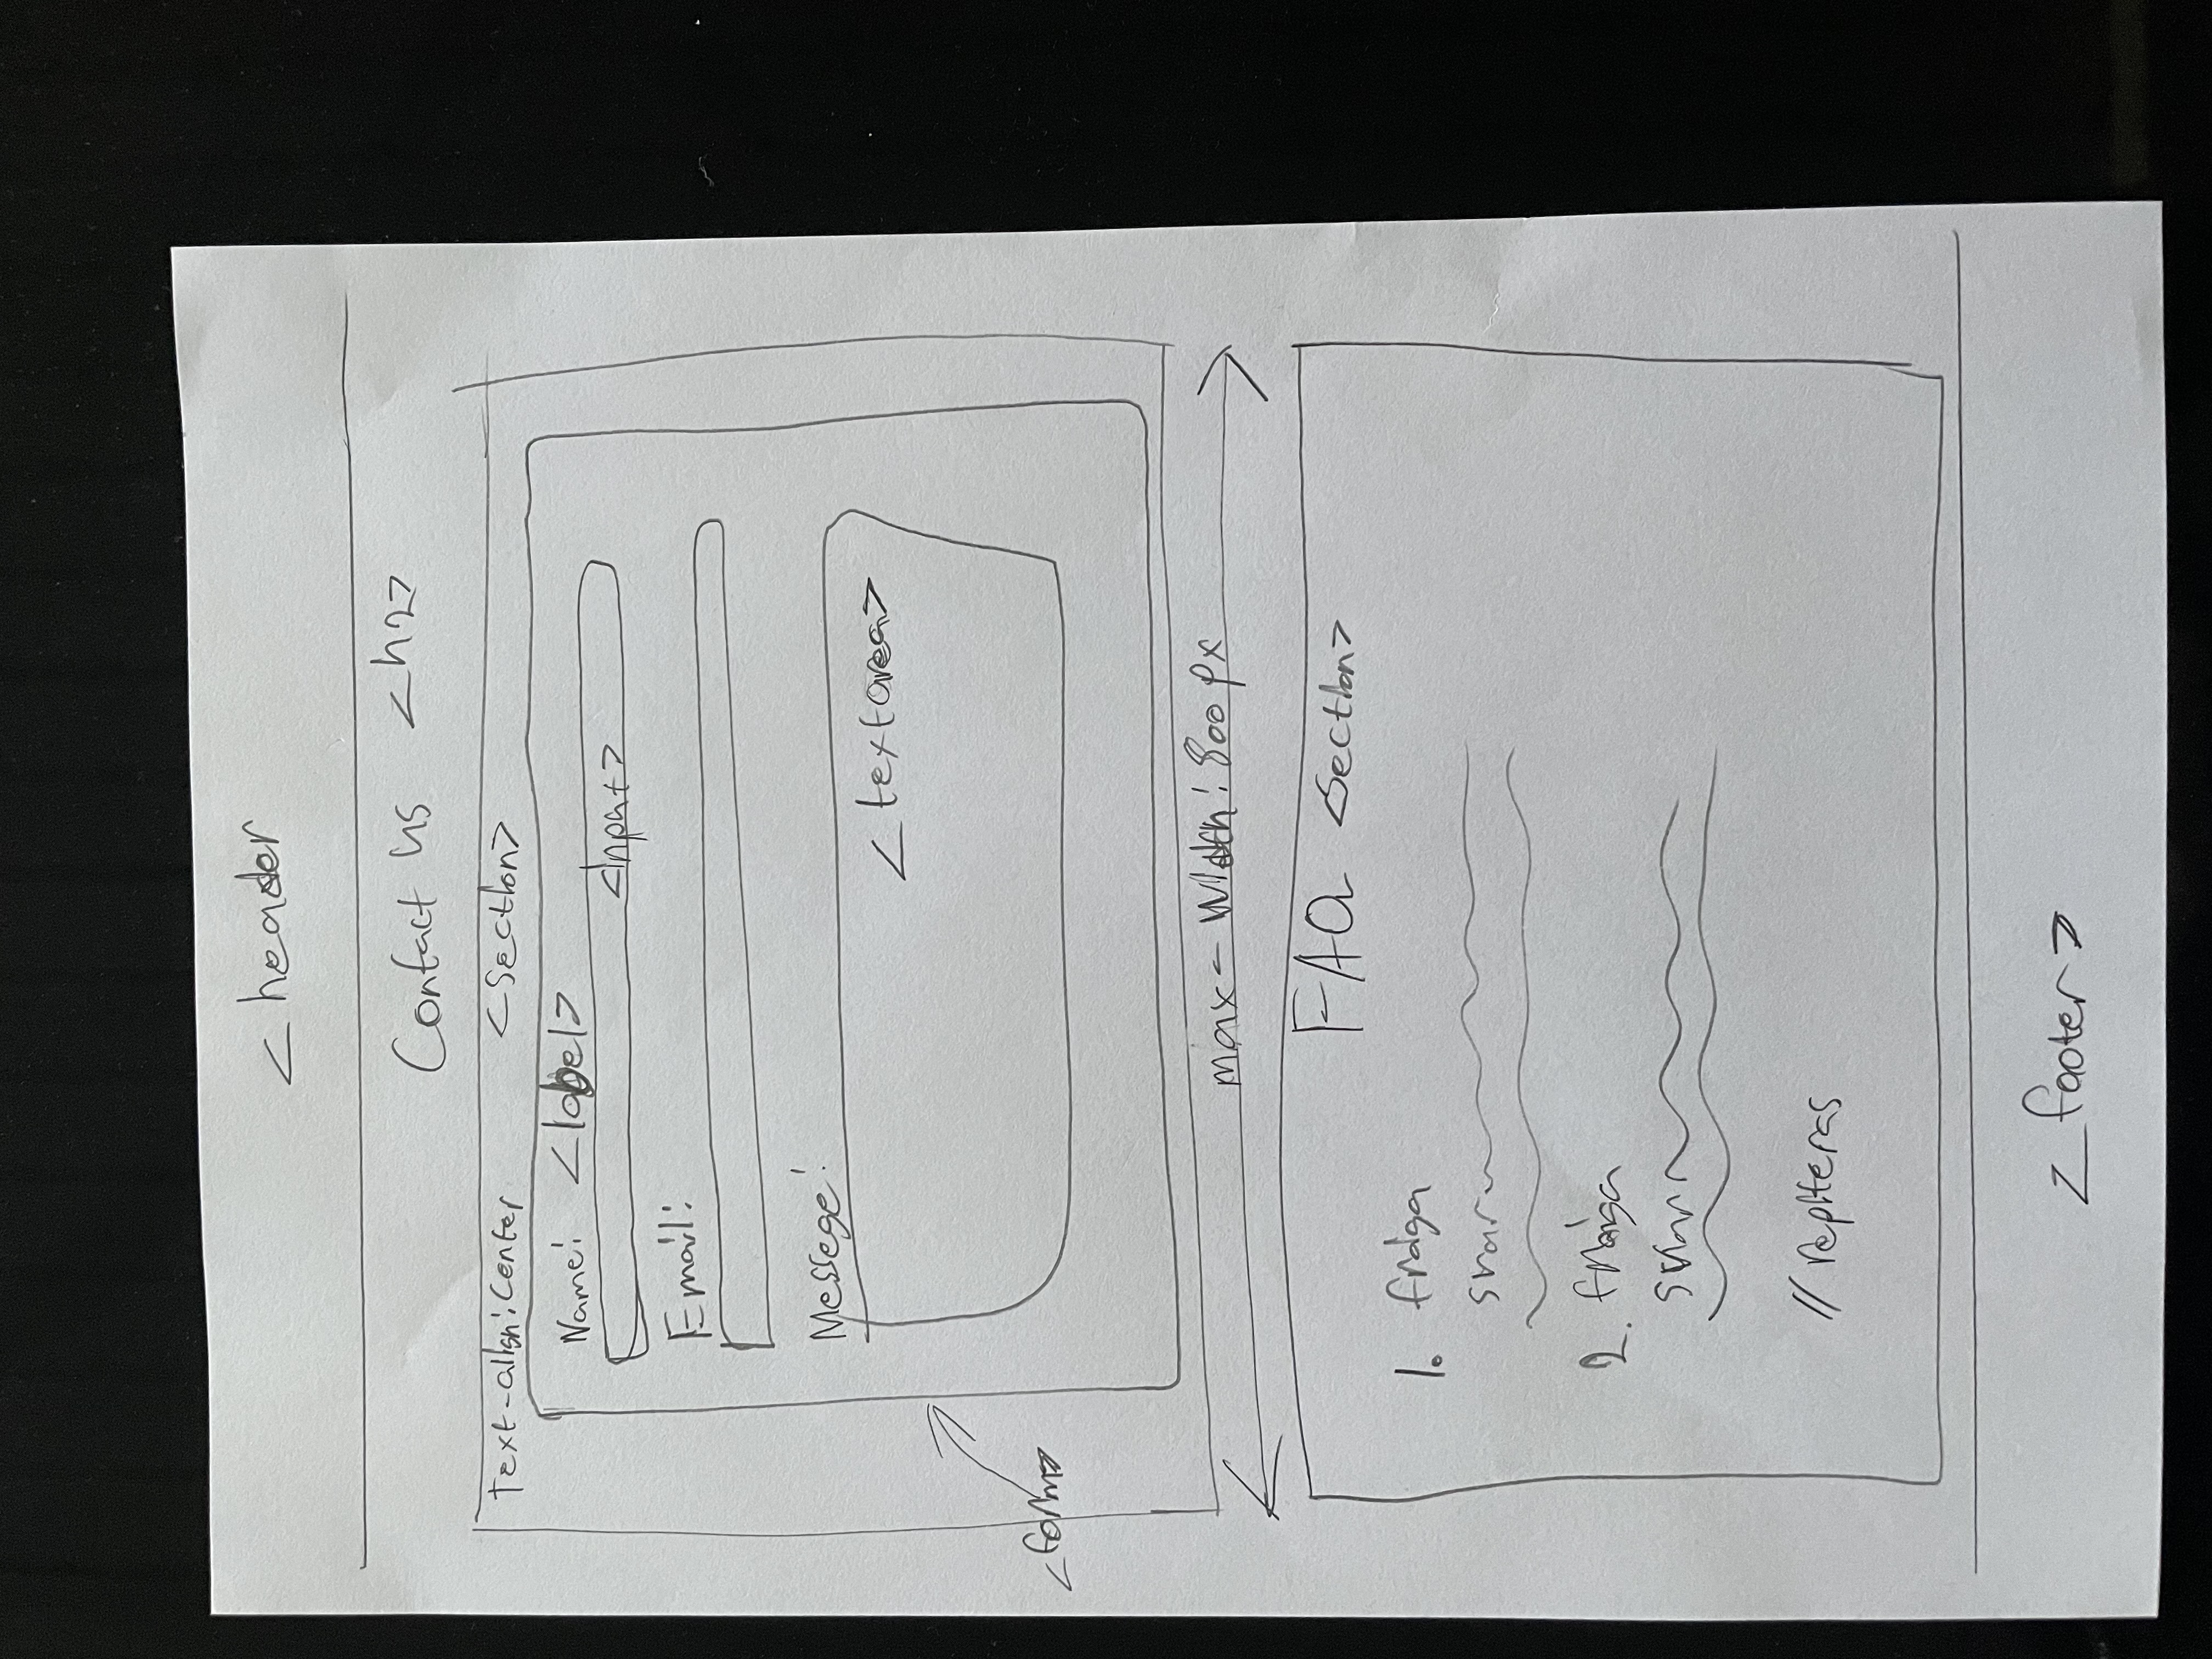 <header
Contact us <h2>
Text-align: Center <section>
Name: <label>
<input>
Email:
Messege:
<textarea>
<form>
max-width: 800px
FAQ <section>
1. fråga
svar
2. fråga
svar
// repiteras
<footer>